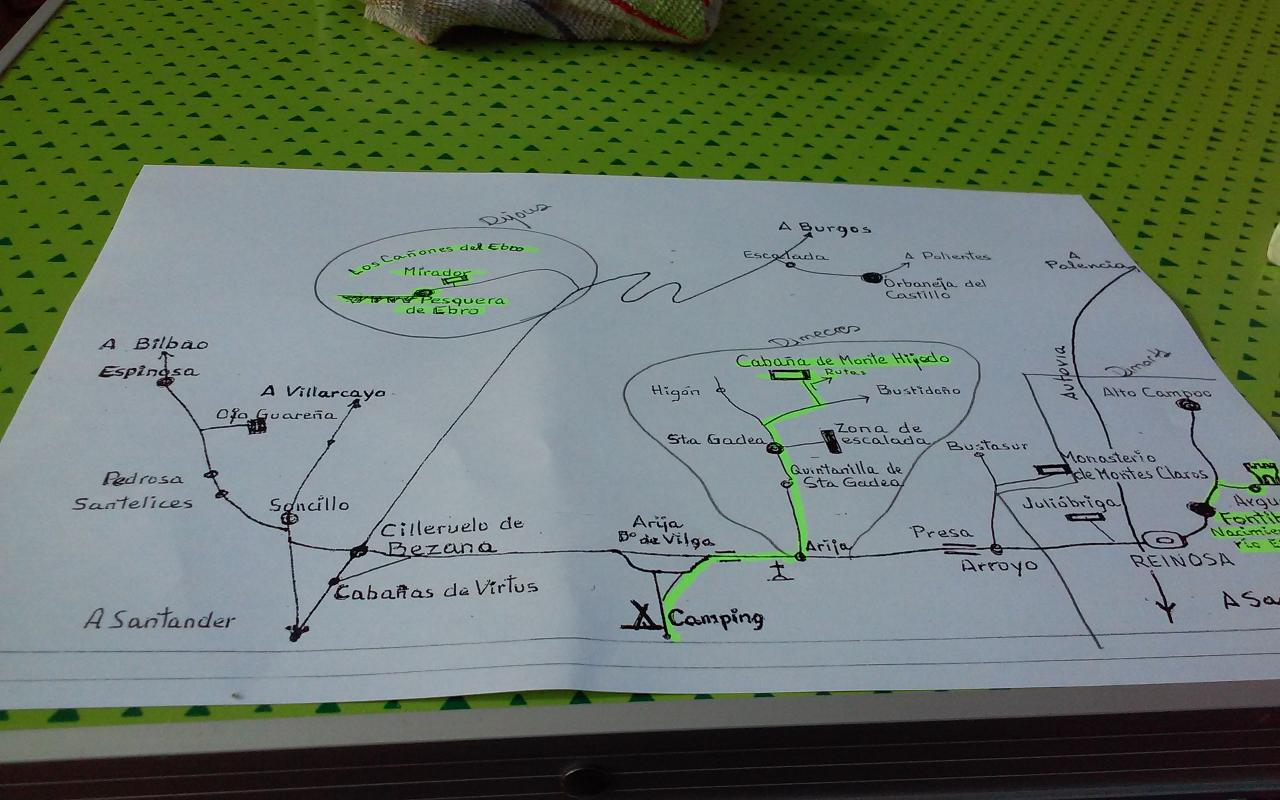 Dijous
Los Cañones del Ebro
Mirador
Pesquera
de Ebro
A Burgos
Escalada
A Polientes
Orbaneja del
Castillo
A
Palencia
Autovia
A Bilbao
Espinosa
Ojo Guareña
A Villarcayo
Pedrosa
Santelices
Soncillo
Cilleruelo de
Bezana
Cabañas de Virtus
A Santander
Dimecres
Cabaña de Monte Hijedo
Rutas
Higón
Bustidoño
Sta Gadea
Zona de
escalada
Quintanilla de
Sta Gadea
Arija
Bº de Vilga
Arija
Camping
Presa
Arroyo
Bustasur
Dimarts
Alto Campoo
Monasterio
de Montes Claros
Julióbriga
REINOSA
Argu
Fontib
Nacimien
río E
A Sa